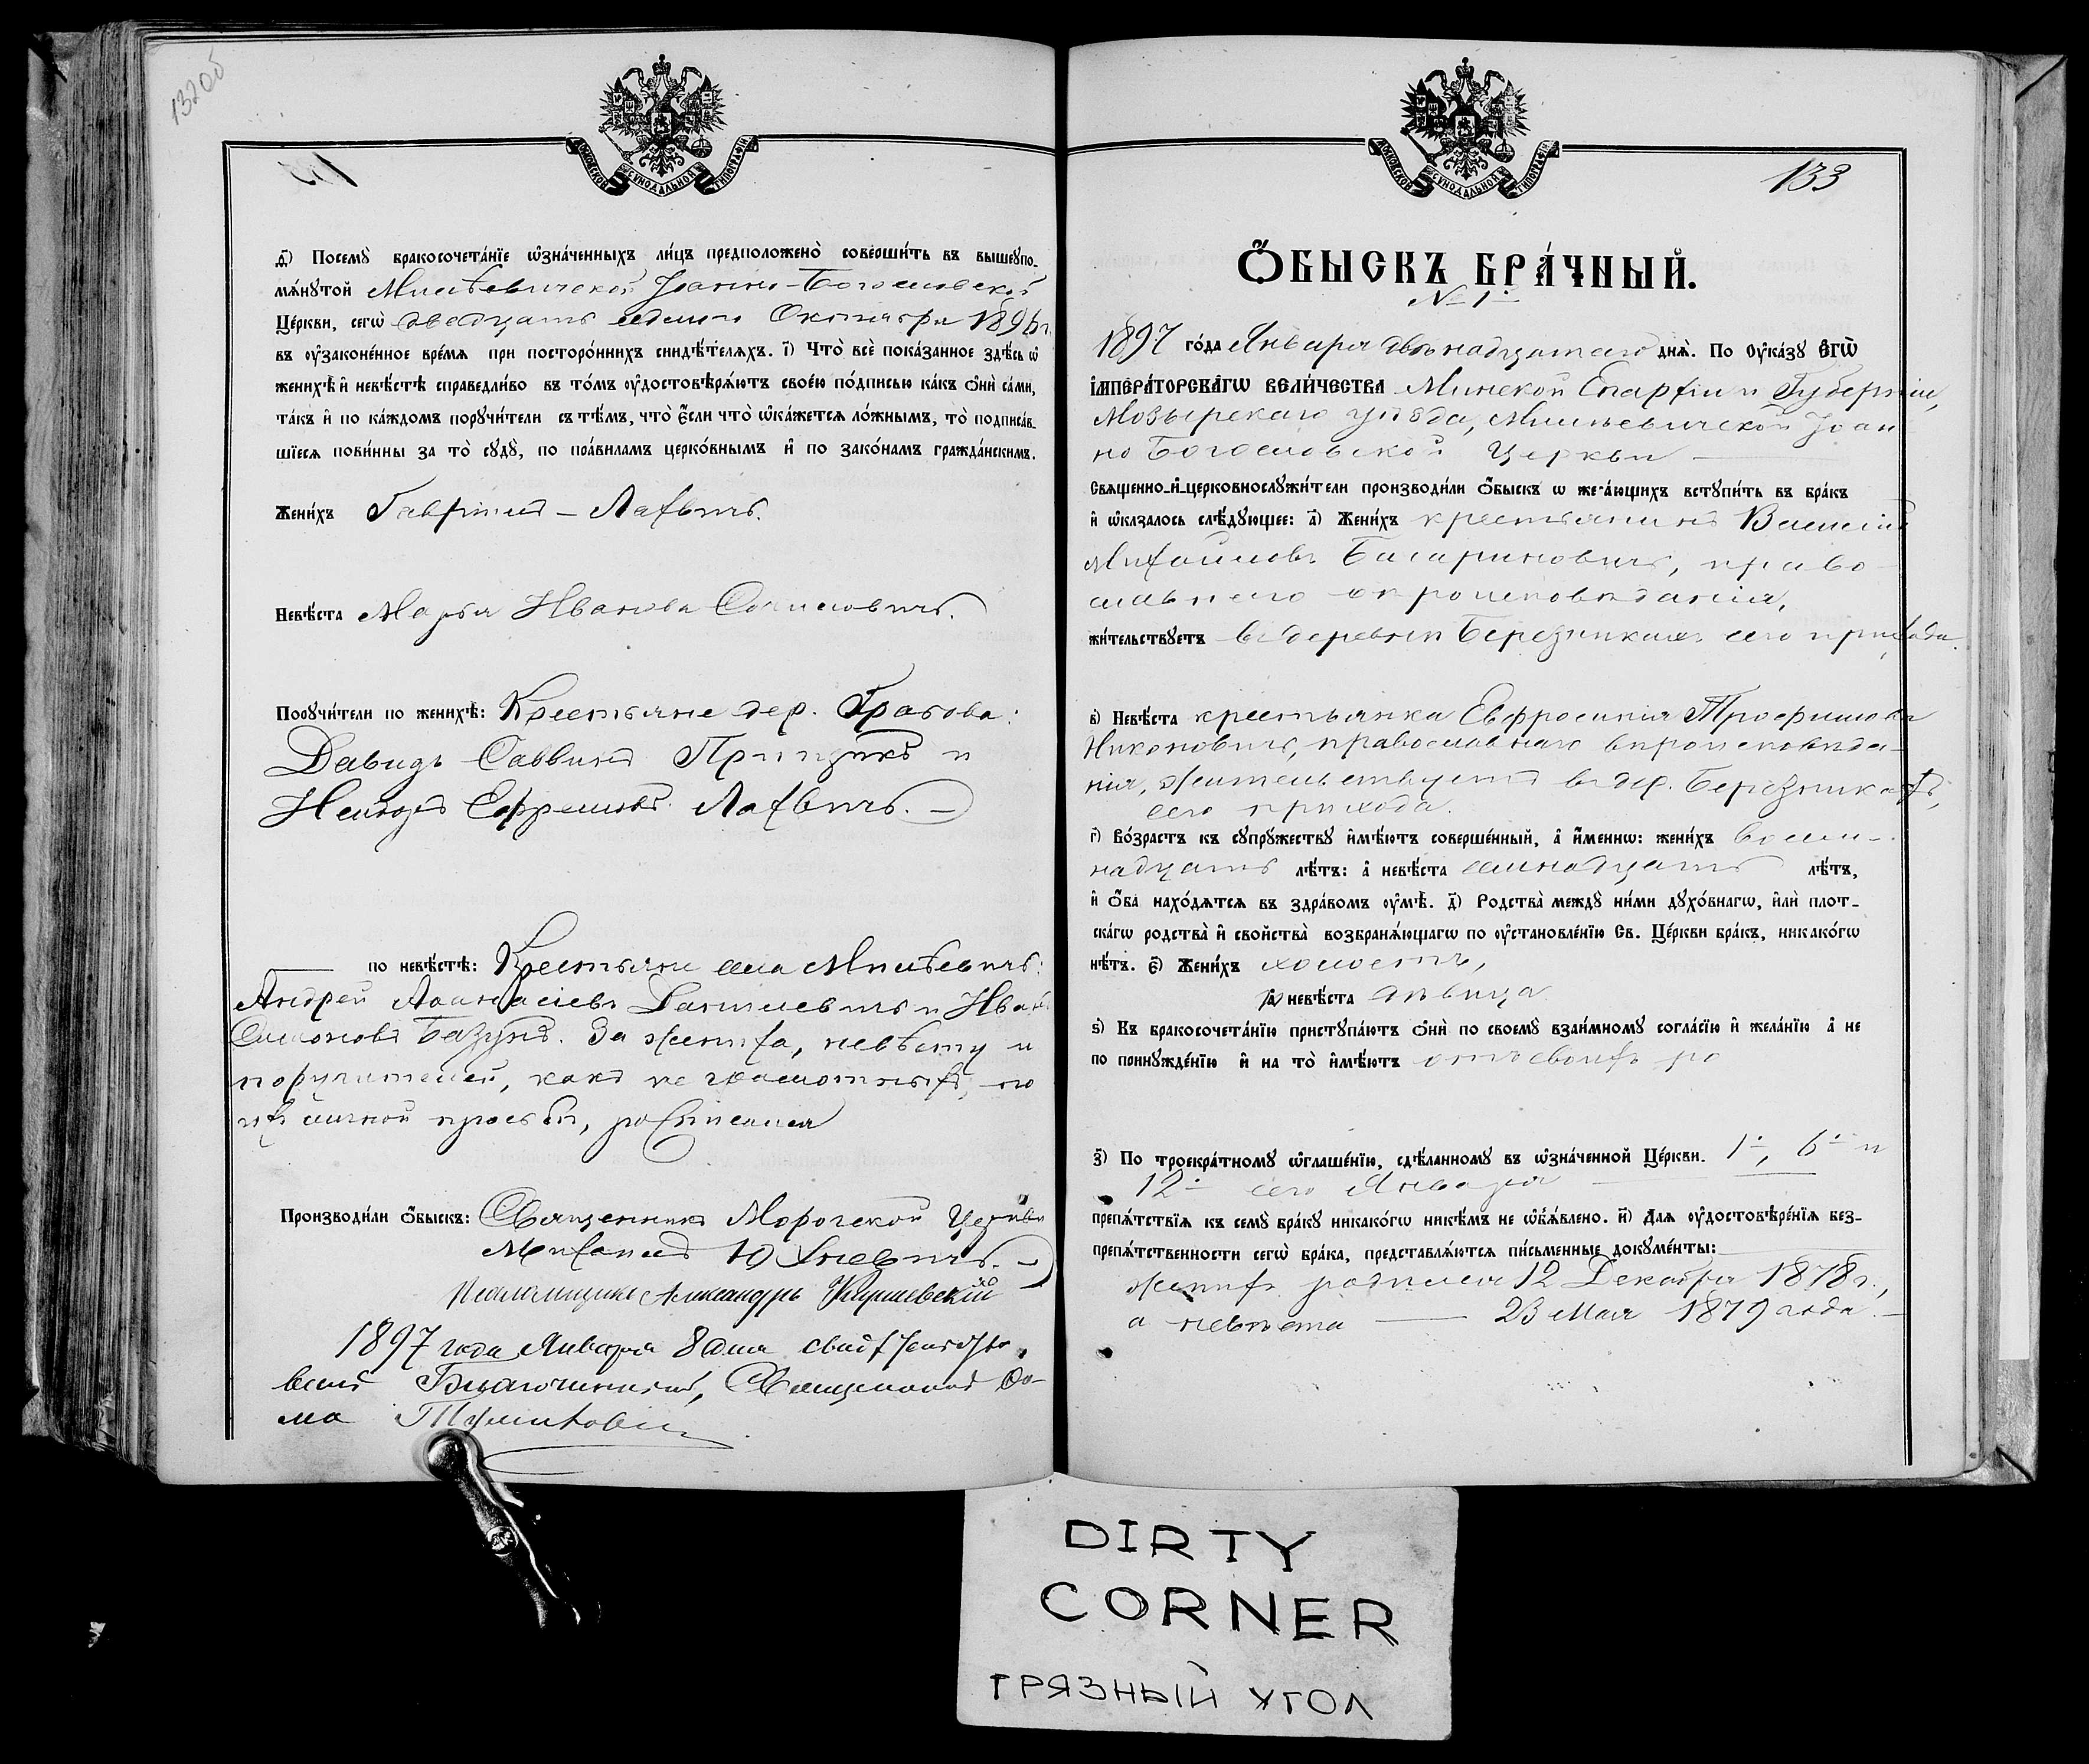 132об
МОСКОВСКОЙ СѴНОДАЛЬНОЙ ТИПОГРАФІИ
д҃) Посемꙋ бракосочета́нїе ѡ҆зна́ченныхъ ли́цъ предположено̀ соверши́ть въ вышеꙋпо-
мѧ́нꙋтой Милѣевичской Іоанно-Богословской
Це́ркви, сегѡ̀ двадцать седьмого Октября 1896 г.
въ ᲂу҆законе́нное вре́мѧ при посторо́ннихъ свидѣ́телѧхъ. і҃) Что̀ всѐ пока́занное здѣ́сь ѡ҆
женихѣ̀ и҆ невѣ́стѣ справедли́во въ то́мъ ᲂу҆достовѣрѧ́ютъ свое́ю по́дписью ка́къ ѻ҆нѝ са́ми,
та́къ и҆ по ка́ждомъ порꙋчи́тели съ тѣ́мъ, что̀ є҆́сли что̀ ѡ҆ка́жетсѧ ло́жнымъ, то̀ подписа́в-
шїесѧ пови́нны за то̀ сꙋдꙋ̀, по пра́виламъ церко́внымъ и҆ по зако́намъ гражда́нскимъ.
Жени́хъ Гавріилъ - Лахвичъ.
Невѣ́ста Марья Иванова Сачиловичъ.
Порꙋчи́тели по женихѣ̀: Крестьяне дер. Грабова:
Давидъ Саввинъ Прищикъ и
Ефремовъ Лахвичъ.
по невѣ́стѣ: Крестьяне села Милѣевичъ:
Андрей Аѳанасіевъ Данилевичъ и Иванъ
Симоновъ Базунъ. За жениха, невѣсту и
поручителей, какъ неграмотныхъ, по
ихъ личной просьбѣ, росписался
Производи́ли ѻ҆́быскъ: Священникъ Морочской Церкви
Михаилъ Юхневичъ.
Псаломщикъ Александръ
1897 года Января 8 дня
Благочинный, Священникъ Ѳо-
ма
МОСКОВСКОЙ СѴНОДАЛЬНОЙ ТИПОГРАФІИ
133
Ѻ҆́БЫСКЪ БРА́ЧНЫЙ.
№ 1-й
1897 го́да Января двѣнадцатаго днѧ̀. По Оу҆ка́зꙋ Є҆ГѠ̀
І҆МПЕРА́ТОРСКАГѠ ВЕЛИ́ЧЕСТВА Минской Епархіи и Губерніи,
Мозырскаго уѣзда, Милѣевичской Іоан-
но Богословской Церкви
Свѧщенно-и҆-церковнослꙋжи́тели производи́ли ѻ҆́быскъ ѡ҆ жела́ющихъ встꙋпи́ть въ бра́къ
и҆ ѡ҆казалось слѣ́дꙋющее: а҃) Жени́хъ крестьянинъ Василій
Михайловъ Багриновичъ, право-
славнаго вѣроисповѣданія,
жи́тельствꙋетъ въ деревнѣ Березнякахъ сего прихода.
в҃) Невѣ́ста крестьянка Евфросинія Трофимова
Никоновичъ, православнаго вѣроисповѣда-
нія, жительствуетъ въ дер. Березнякахъ,
сего прихода.
г҃) Во́зрастъ къ сꙋпрꙋжествꙋ и҆мѣ́ютъ соверше́нный, а҆ и҆́меннѡ: жени́хъ восем-
надцать лѣ́тъ: а҆ невѣ́ста семнадцать лѣ́тъ,
и҆ ѻ҆́ба нахо́дѧтсѧ въ здра́вомъ ᲂу҆мѣ̀. д҃) Родства̀ междꙋ ни́ми дꙋхо́внагѡ, и҆лѝ плот-
ска́гѡ родства̀ и҆ свойства̀ возбранѧ́ющагѡ по ᲂу҆становле́нїю Св. Це́ркви бра́къ, никако́гѡ
нѣ́тъ. є҃) Жени́хъ холостъ,
а҆ невѣ́ста дѣвица
ѕ҃) Къ бракосочета́нїю пристꙋпа́ютъ ѻ҆нѝ по своемꙋ̀ взаи́мномꙋ согла́сїю и҆ жела́нїю а҆ не
по принꙋжде́нїю и҆ на то̀ и҆мѣ́ютъ отъ своихъ ро
з҃) По троекра́тномꙋ ѡ҆глаше́нїю, сдѣ́ланномꙋ въ ѡ҆зна́ченной Це́ркви. 1-, 6- и
12- сего Января
препѧ́тствїѧ къ семꙋ̀ бра́кꙋ никако́гѡ никѣ́мъ не ѡ҆б̾ѧ́влено. и҃) Для ᲂу҆достовѣре́нїѧ без-
препѧ́тственности сегѡ̀ бра́ка, представлѧ́ютсѧ пи́сьменные докꙋме́нты:
женихъ родился 12 Декабря 1878 г.,
а невѣста —— 23 Мая 1879 года. —
DIRTY
CORNER
ГРЯЗНЫЙ УГОЛ